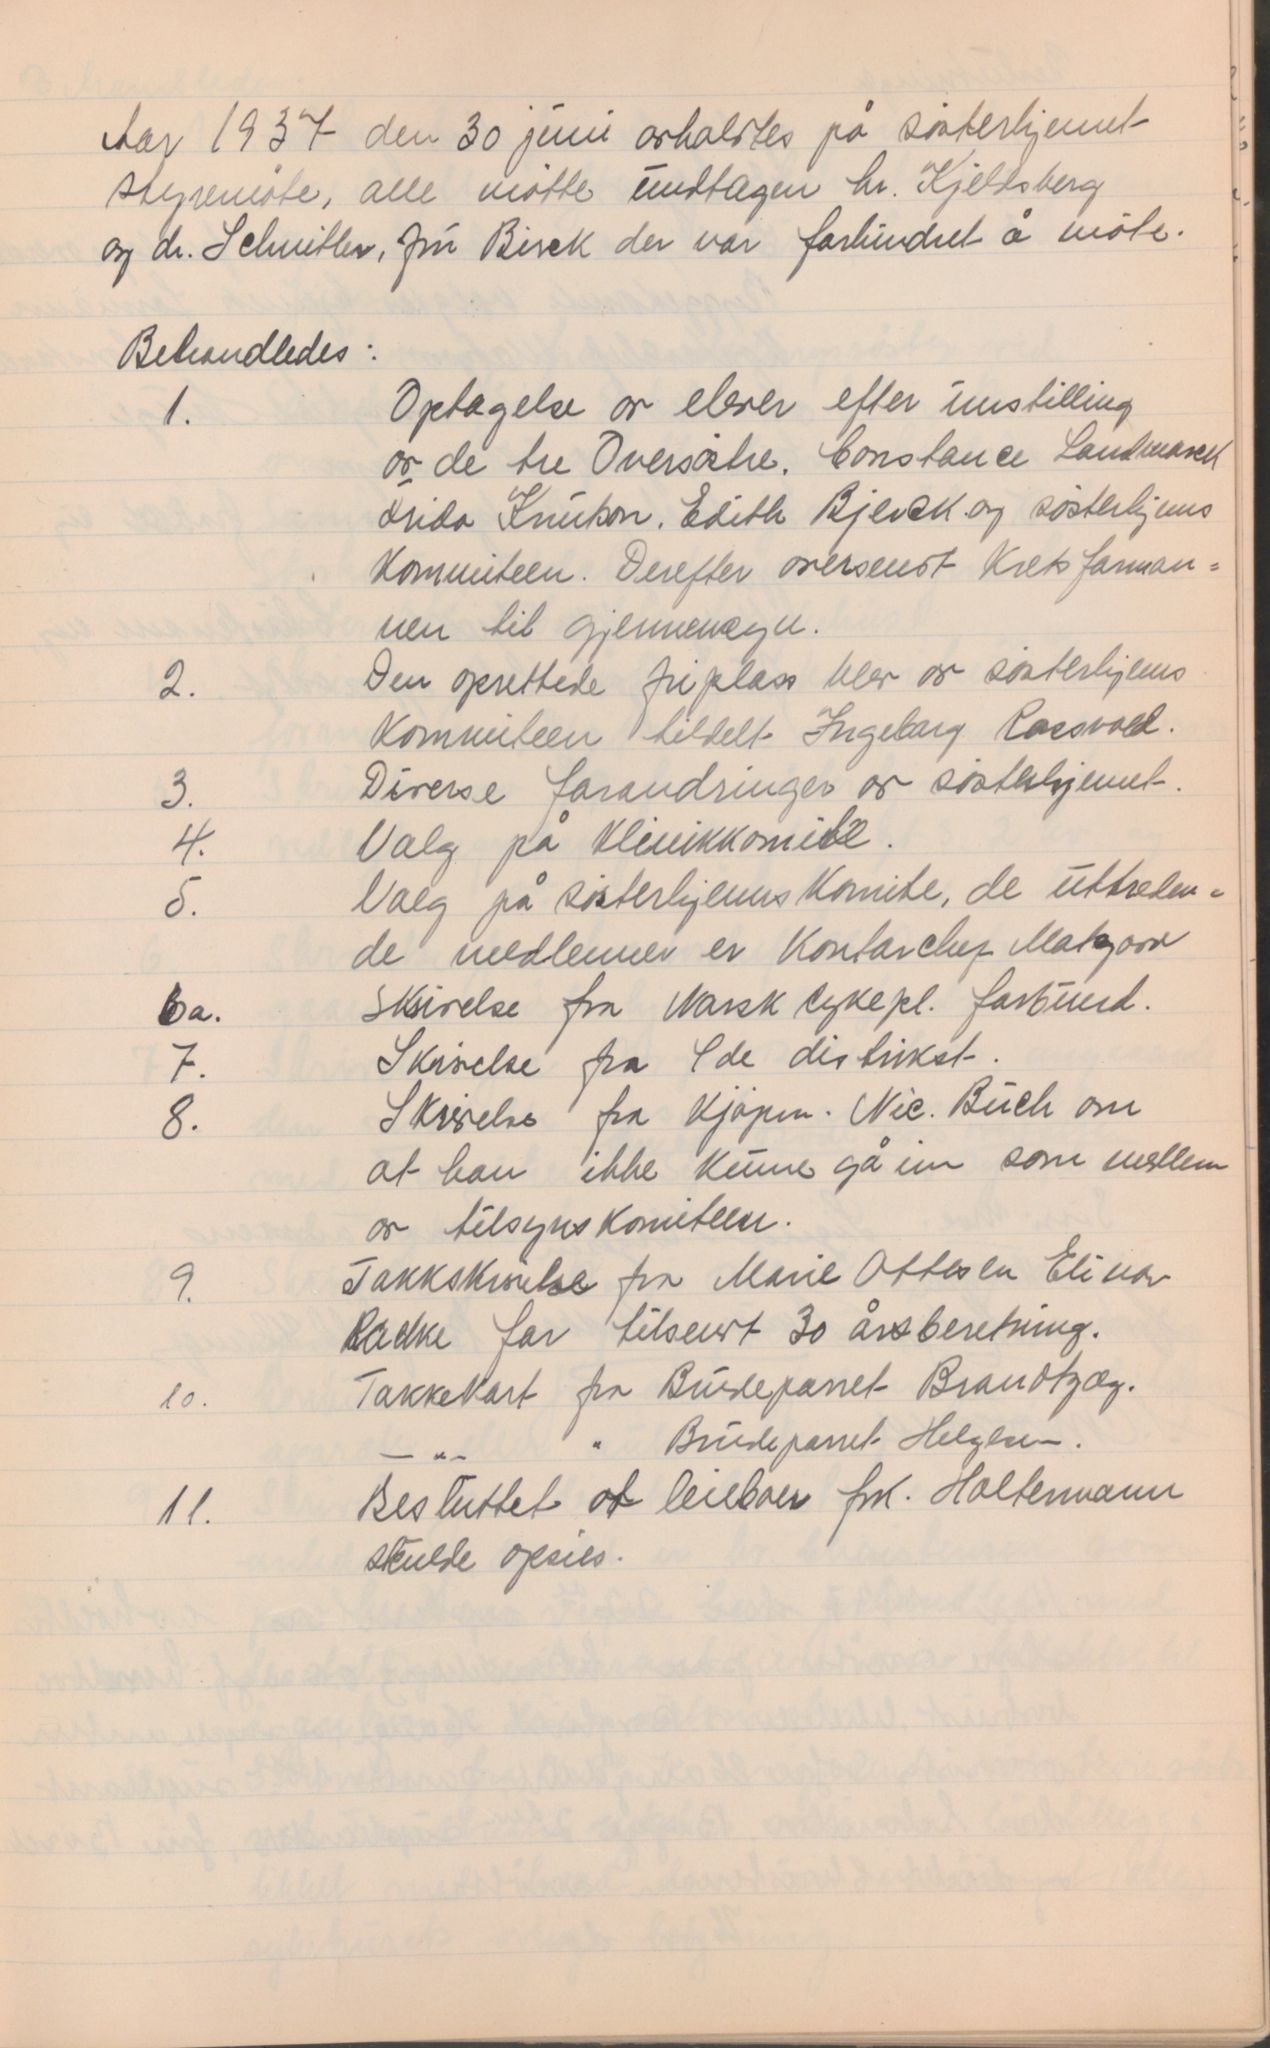 Aar 1937 den 30 juni avholdtes på søsterhjemmet
styremøte, alle møtte undtagen hr. Kjeldsberg
og dr. Schmitler, fru Birck der var forhindret å møte.
Behandledes:
1. Optagelse av elever efter innstilling
av de tre Oversøstre. Constance Landmarck
Frida Knutson, Edith Bjerck og søsterhjems
Kommiteen. Derefter oversendt Kretsforman=
nen til gjennemsyn.
2. Den oprettede friplass blev av søsterhjems
Kommiteen tildelt Ingeborg Rossvold.
3. Diverse forandringer av søsterhjemmet.
4. Valg på Klinikkomite.
5. Valg på søsterhjems Komite, de uttreden=
de medlemmer er Kontorchef Matzow
6a. Skrivelse fra Norsk sykepl. forbund.
7. Skrivelse fra 1de distrikst.
8. Skrivelse fra Kjøpm. Nic. Buch om
at han ikke kunne gå inn som medlem
av tilsynskomiteen.
9. Takkskrivelse fra Marie Ottesen Elinor
Radke for tilsendt 30 årsberetning.
10. Takkekort fra Brudeparret Brandtzæg.
— " — " Brudeparret Helgesen.
11. Besluttet at leieboer frk. Holtermann
skulde opsies.